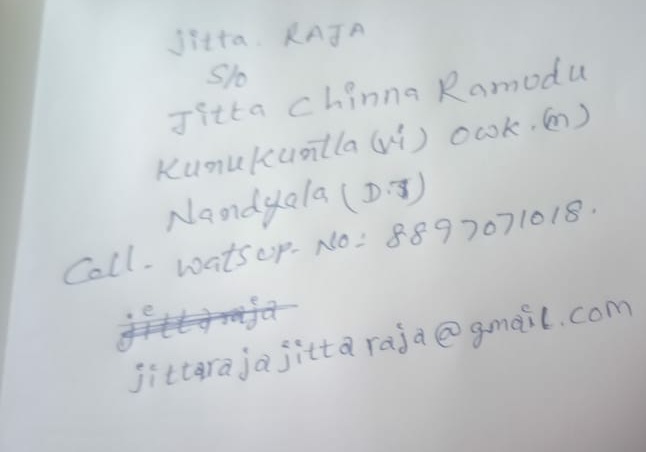 Jitta. RAJA
S/o
Jitta Chinna Ramudu
Kunukuntla (vi) Owk.(m)
Nandyala (D.T)
Call. watsup. No: 8897071018.
jittaraja
jittarajajittaraja@gmail.com